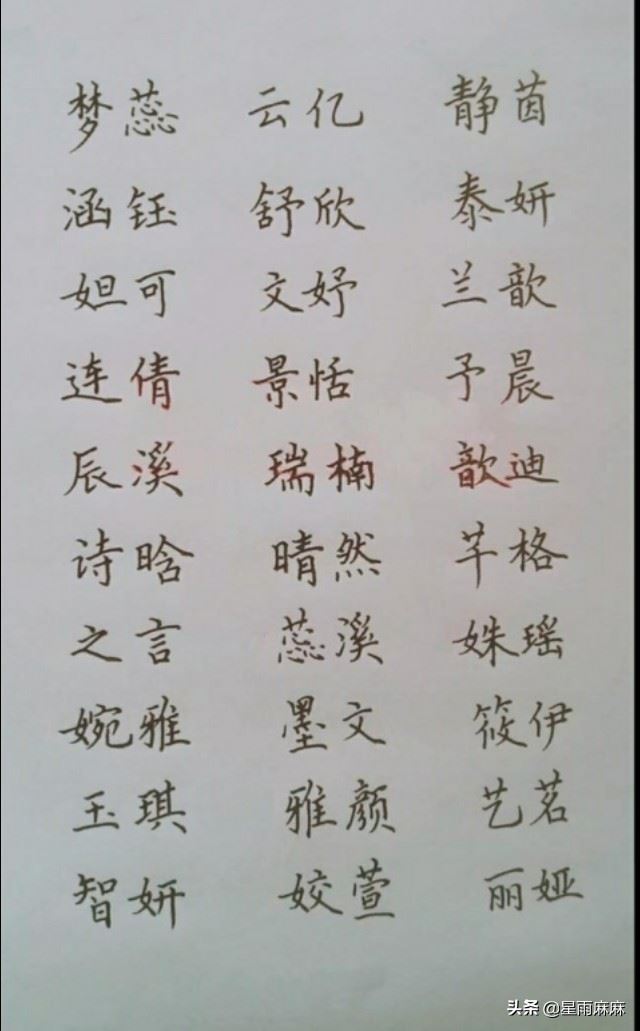 梦蕊 云亿 静茵
涵钰 舒欣 泰妍
妲可 文妤 兰歆
连倩 景恬 予晨
辰溪 瑞楠 歆迪
诗晗 晴然 芊格
之言 蕊溪 姝瑶
婉雅 墨文 筱伊
玉琪 雅颜 艺茗
智妍 姣萱 丽娅
头条 @星雨麻麻